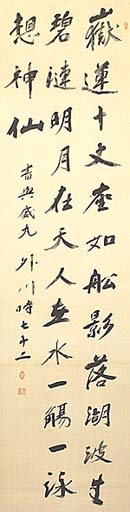 嶽蓮十丈如船影落湖波生
碧漣明月在天人在水一觴一詠
想神仙
時七十二